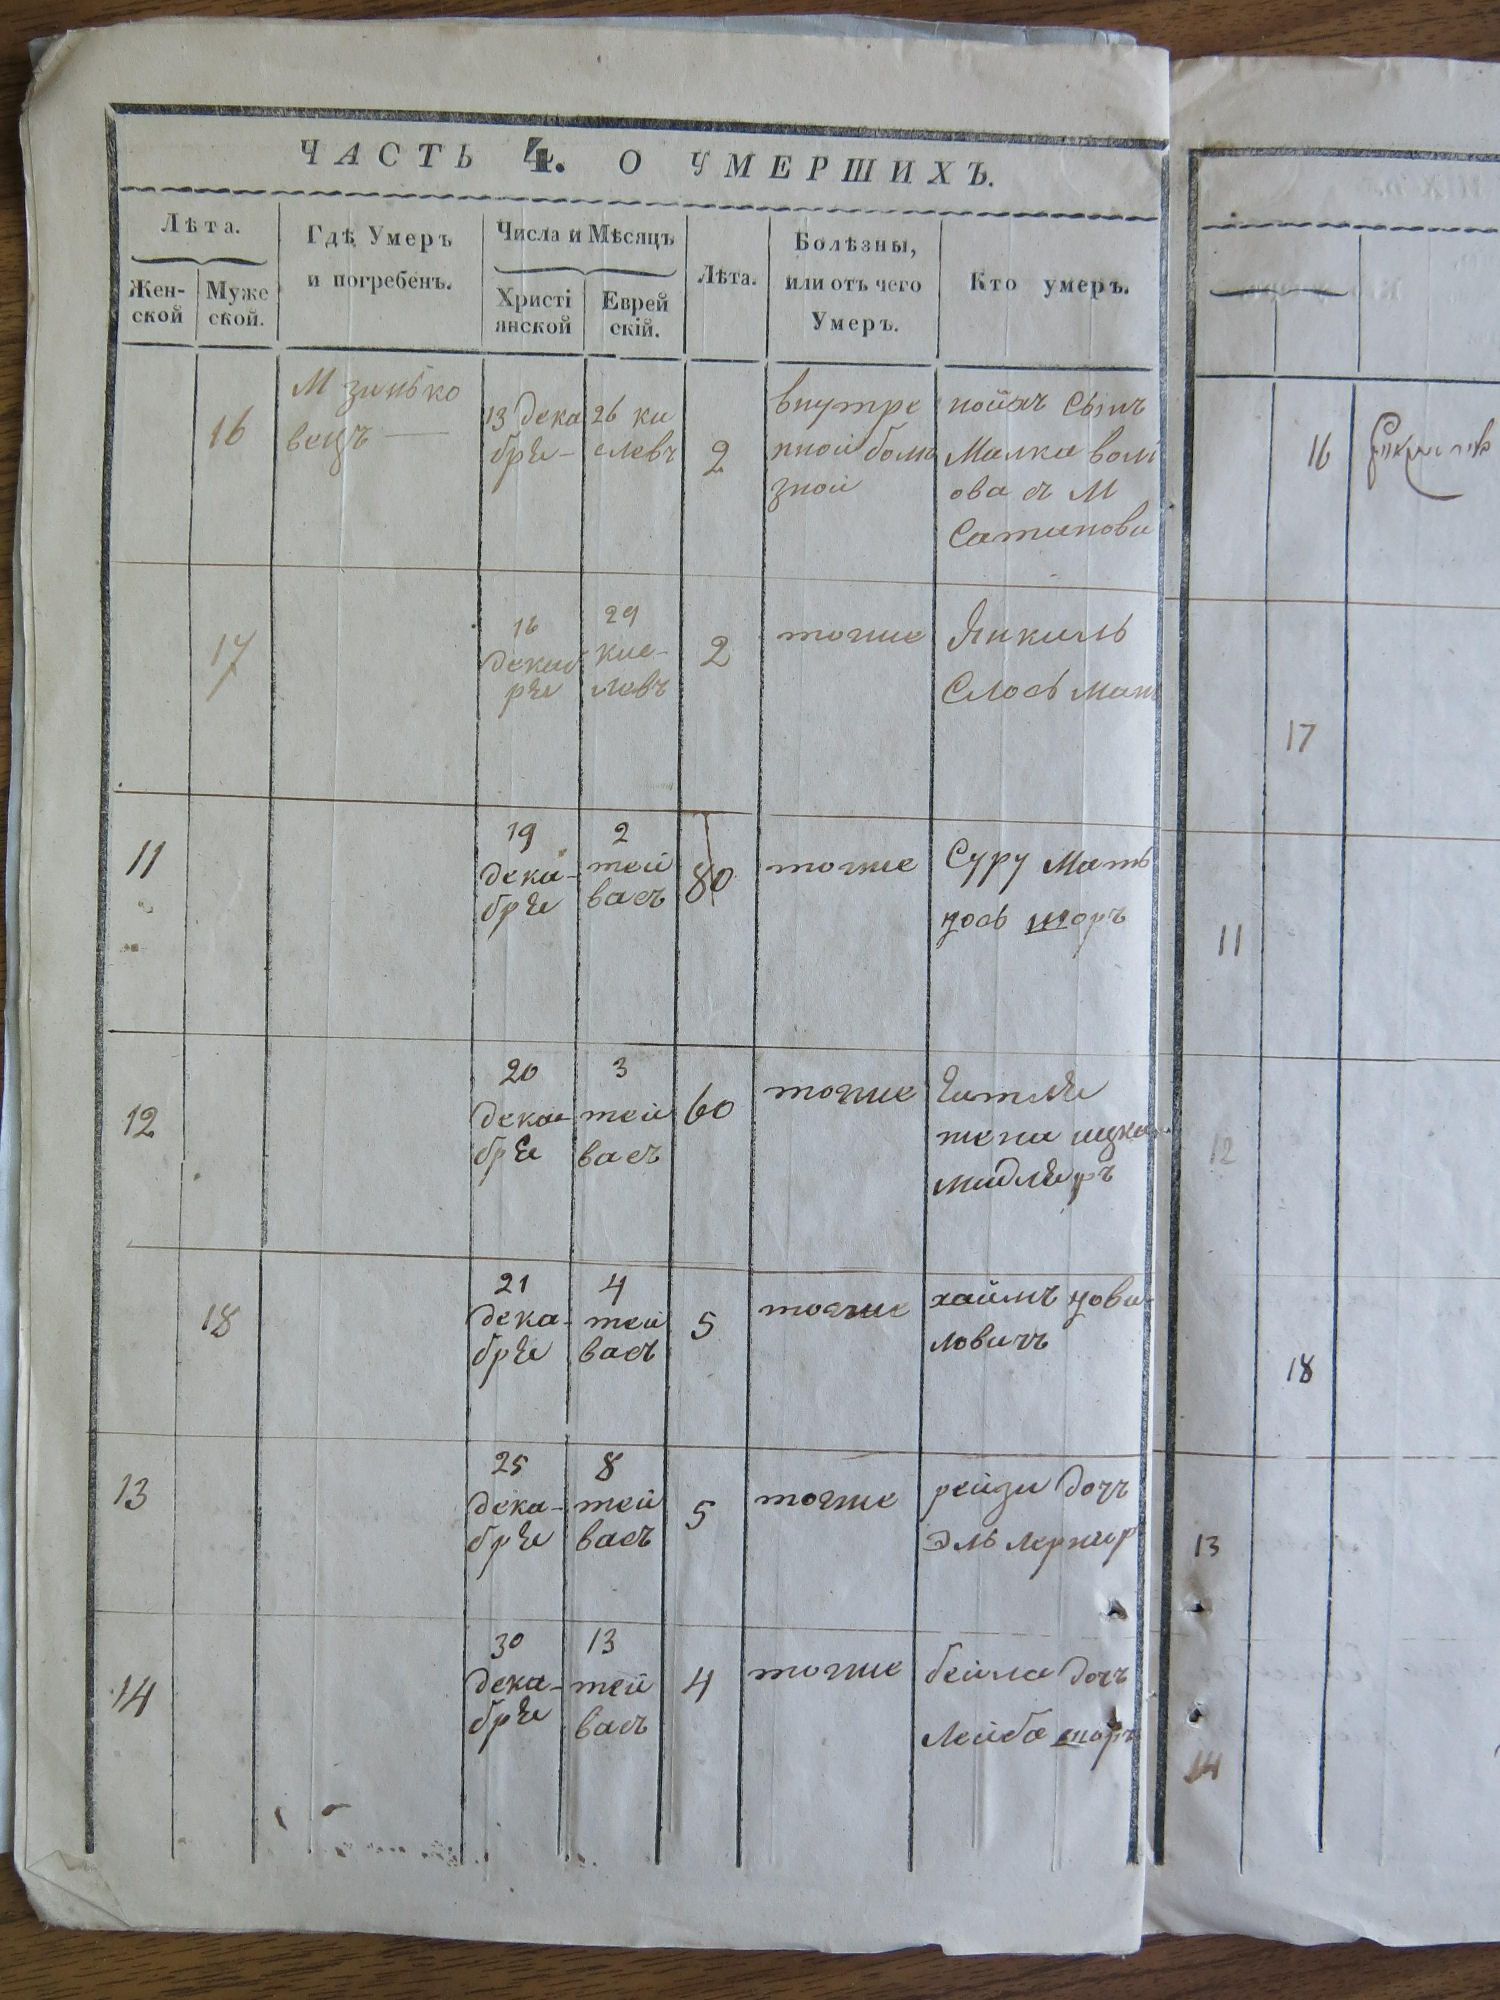 ЧАСТЬ 4. О УМЕРШИХЪ.
Лѣта.
Жен-
ской
Муже
ской.
Гдѣ Умеръ
и погребенъ.
Числа и Мѣсяцъ
Христі
янской
Еврей
скій.
Лѣта.
Болѣзны,
или отъ чего
Умеръ.
Кто умеръ.
16
М зинько
вецъ —
13 дека
бря –
26 ки
слевъ
2
внутре
нной боле
зной
сынъ
Малка
ова съ М
Сатанова
17
16
декаб
ря
29
кис-
левъ
2
тогже
Янкиль
11
19
дека-
бря
2
тей
васъ
80
тогже
Суру Мать
Іось Шоръ
12
20
дека-
бря
3
тей
васъ
60
тогже
жена
18
21
дека-
бря
4
тей
васъ
5
тогже
хаимъ
ловичъ
13
25
дека-
бря
8
тей
васъ
5
тогже
рейзи дочъ
Эль лернир
14
30
дека-
бря
13
тей
васъ
4
тогже
бейла дочъ
Лейба шоръ
16
17
11
12
18
13
14